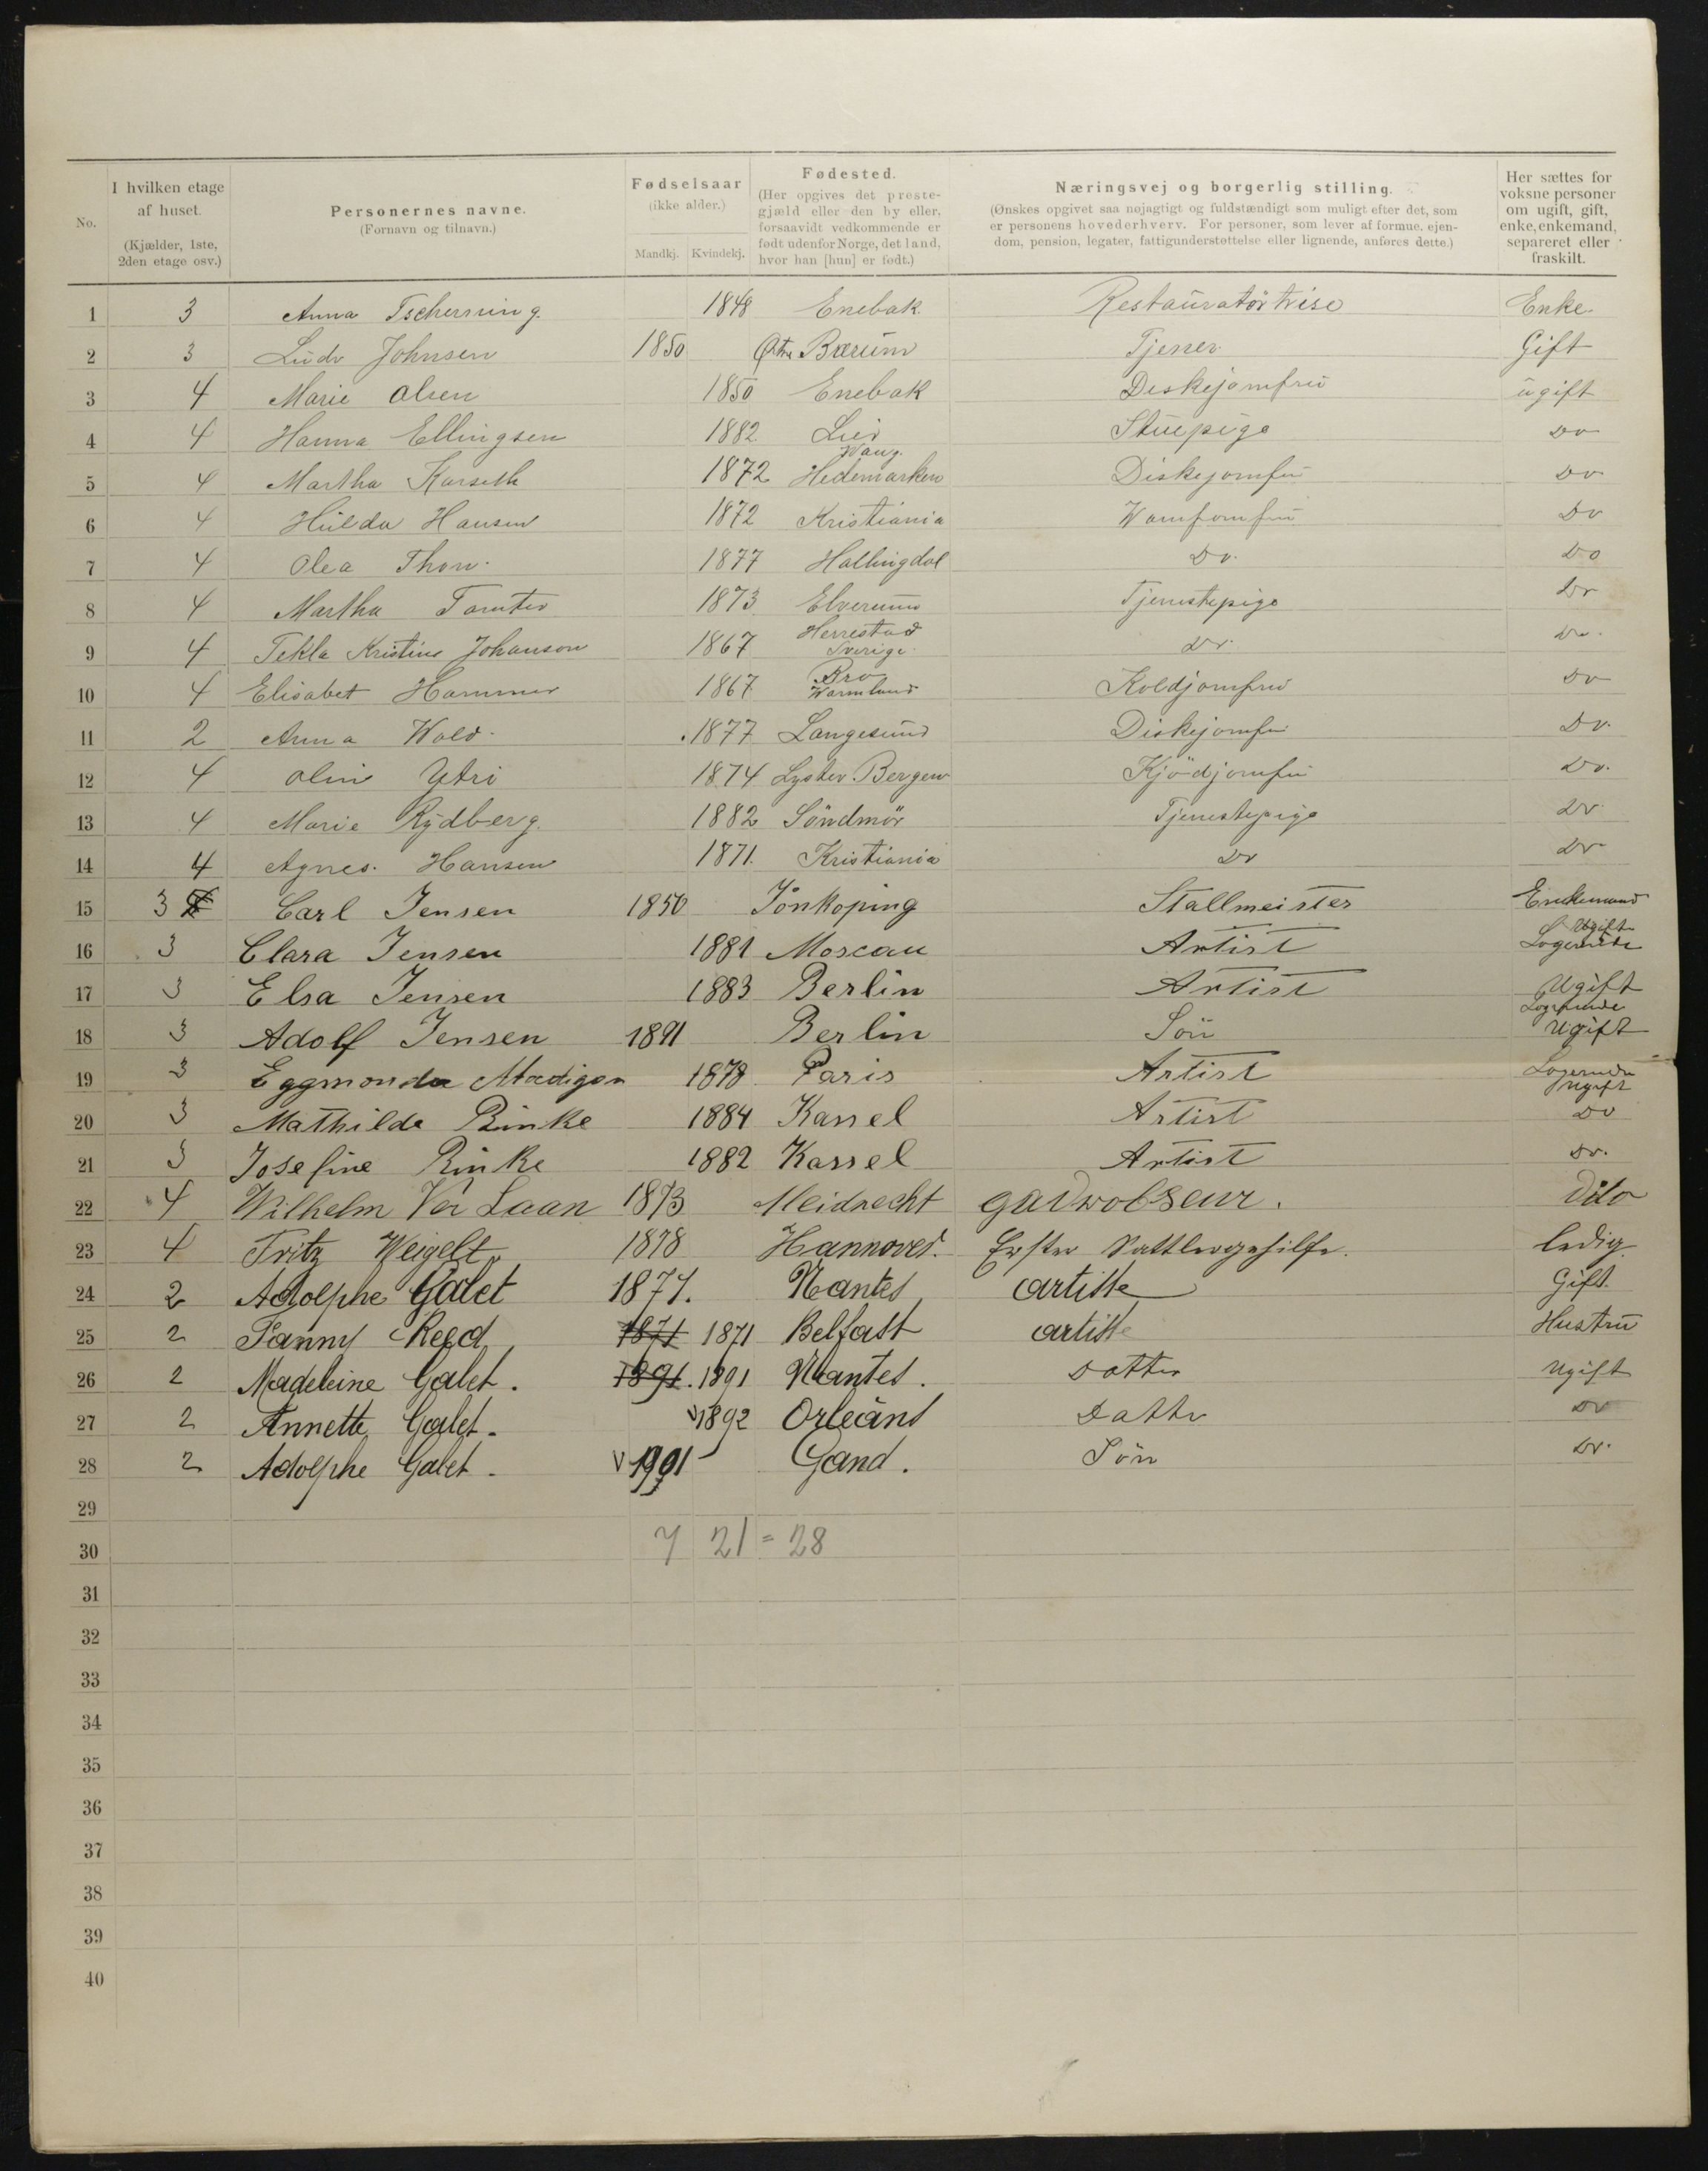 No.
I hvilken etage af huset.
(Kjælder, 1ste, 2den etage osv.)
Personernes navne.
(Fornavn og tilnavn.)
Fødselsaar
(ikke alder.)
Mandkj. Kvindekj.
Fødested.
(Her opgives det prestegjæld eller den by eller, forsaavidt vedkommende er født udenfor Norge, det land, hvor han [hun] er født.)
Næringsvej og borgerlig stilling.
(Ønskes opgivet saa nøjagtigt og fuldstændigt som muligt efter det, som er personens hovederhverv. For personer, som lever af formue, ejendom, pension, legater, fattigunderstøttelse eller lignende, anføres dette.)
Her sættes for voksne personer om ugift, gift, enke, enkemand, separeret eller fraskilt.
1 3 Anna Tscherning 1848 Enebak Restauratörtrise Enke
2 3 Ludv Johnsen 1850 Bærum Tjener Gift
3 4 Marie Olsen 1850 Enebak Diskejomfru ugift
4 4 Hanna Ellingsen 1882 Lier Stuepige Do
5 4 Martha Karseth 1872 Vang. Hedemarken Diskejomfru Do
6 4 Hulda Hansen 1872 Kristiania Do
7 4 Olea Thon 1877 Hallingdal Do. Do
8 4 Martha 1873 Elverum Tjenestepige Do
9 4 Tekla Kristine Johanson 1867 Herrestad Sverige Do. Do.
10 4 Elisabet Hammer 1867 Bro Warmland Koldjomfru Do
11 2 Anna Wold 1877 Langesund Diskejomfru Do.
12 4 Olin Ytri 1874 Lyster Bergen Kjödjomfru Do.
13 4 Marie Rydberg. 1882 Söndmör Tjenestepige Do
14 4 Agnes. Hansen 1871. Kristiania Do Do
15 3 4 Carl Jensen 1850 Jönköping Stallmeister Enkemand
16 3 Clara Jensen 1881 Moscau Artist Ugift Logerende
17 3 Elsa Jensen 1883 Berlin Artist Ugift Logerende
18 3 Adolf Jensen 1891 Berlin Sön Ugift
19 3 Eggmonda Madigan 1878 Paris Artist Logerende Ugift
20 3 Mathilde Rinke 1884 Kassel Artist Do
21 3 Josefine Rinke 1882 Kassel Artist Do.
22 4 Wilhelm Ver Laan 1873 Meidrecht gardrobseur. Dito
23 4 Fritz Weigelt 1878 Hannover. Erster Sattlergehilfe. ledig.
24 2 Adolphe Galet 1871. Nantes artiste Gift.
25 2 Fanny Reed 1871 1871 Belfast artiste Hustru
26 2 Madeleine Galet. 1891. 1891 Nantes. Datter Ugift
27 2 Annette Galet. 1892 Orleans Datter Do
28 2 Adolphe Galet. 1901 Gand. Sön Do.
29
30 7 21 = 28
31
32
33
34
35
36
37
38
39
40